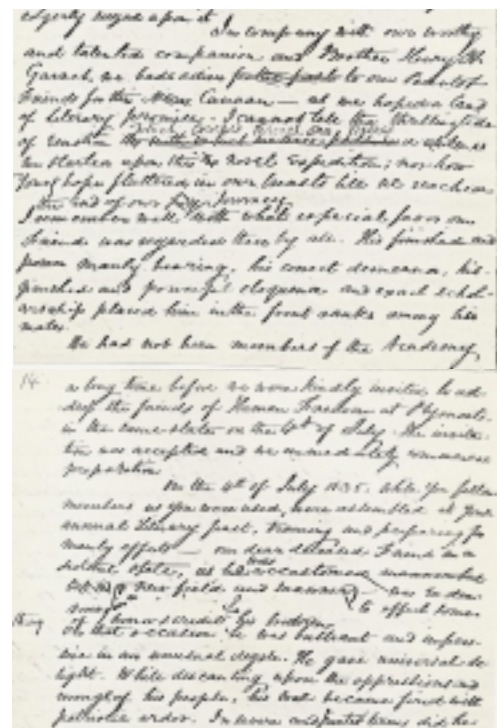 eagerly urged upon it
In company with our worthy
and talented companion and Brother Henry H.
Garnet, we bade adieu to our Parents &
Friends for the New Canaan — as we hoped a land
of Literary promise. I cannot tell the thrilling tide
of emotion
we started upon this novel Expedition; nor how
hope fluttered in our breasts till we reached
the end of our Journey.
I remember well with what especial favor our
Friend was regarded there by all. His finished and
manly bearing, his correct demeanor, his
finished and powerful eloquence and exact schol-
arship placed him in the front ranks among his
mates.
We had not been members of the Academy,
14.
a long time before we were kindly invited to ad-
dress the friends of Human Freedom at Plymouth
in the same state on the 4th of July. The invita-
tion was accepted and we immediately commenced
preparation.
On the 4th of July 1835. while you fellow
members as you were used, were assembled at your
annual Literary feast, and preparing for
manly efforts — our dear deceased Friend in a
distant state, as was accustomed
new field and manner to effect some
thing of honor & credit
On that occasion he was brilliant and impres-
sive in an unusual degree. He gave universal de-
light. While descanting upon the oppressions and
wrongs of his people, his soul became fired with
patriotic ardor. In did he